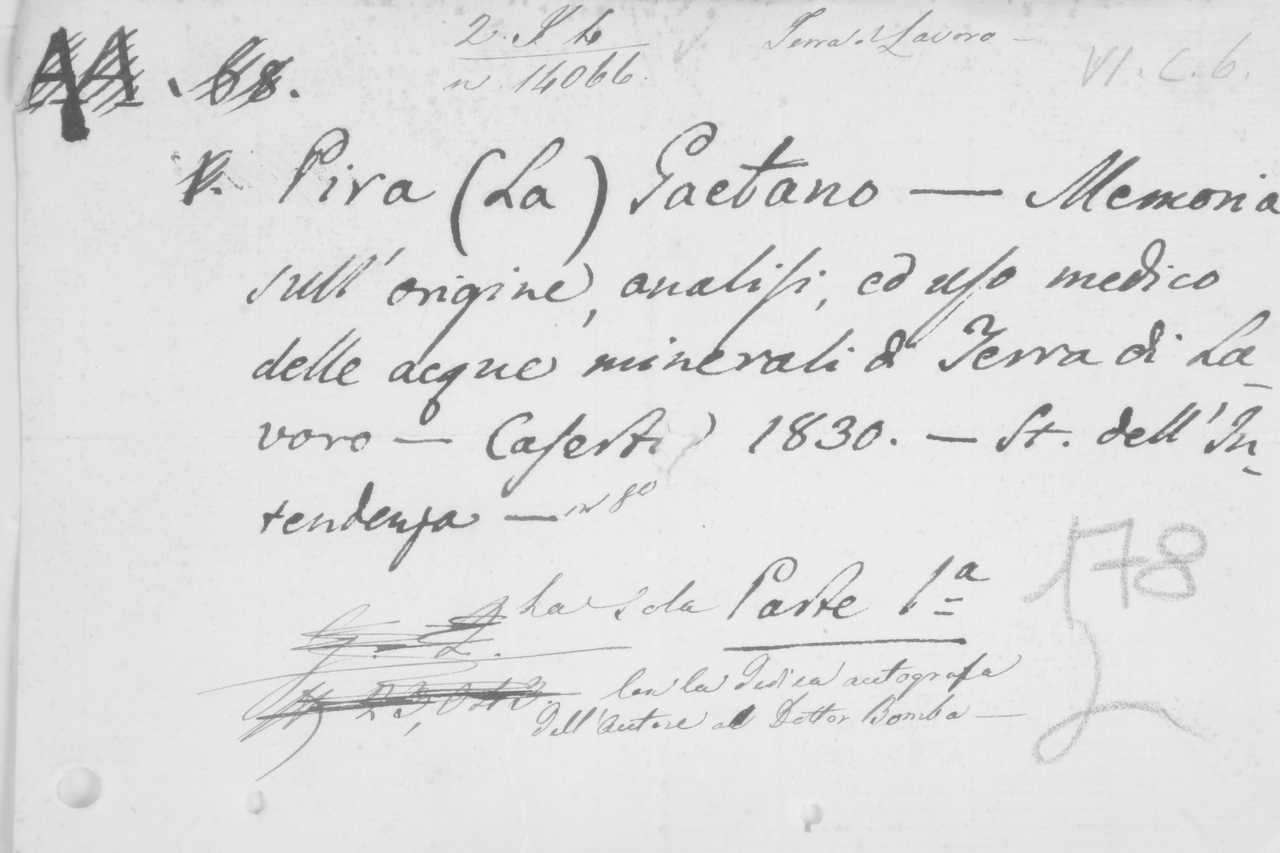 Terra d Lavoro —
n. 14066.
VI. C. 6.
Pira (La) Gaetano — Memoria
sull' origine, analisi, ed uso medico
delle acque minerali di Terra di La-
voro — Caserta 1830. — St. dell' In-
tendenza — in 8º
La sola Parte 1ª
178
Con la dedica autografa
dell'Autore al Dottor Bomba —